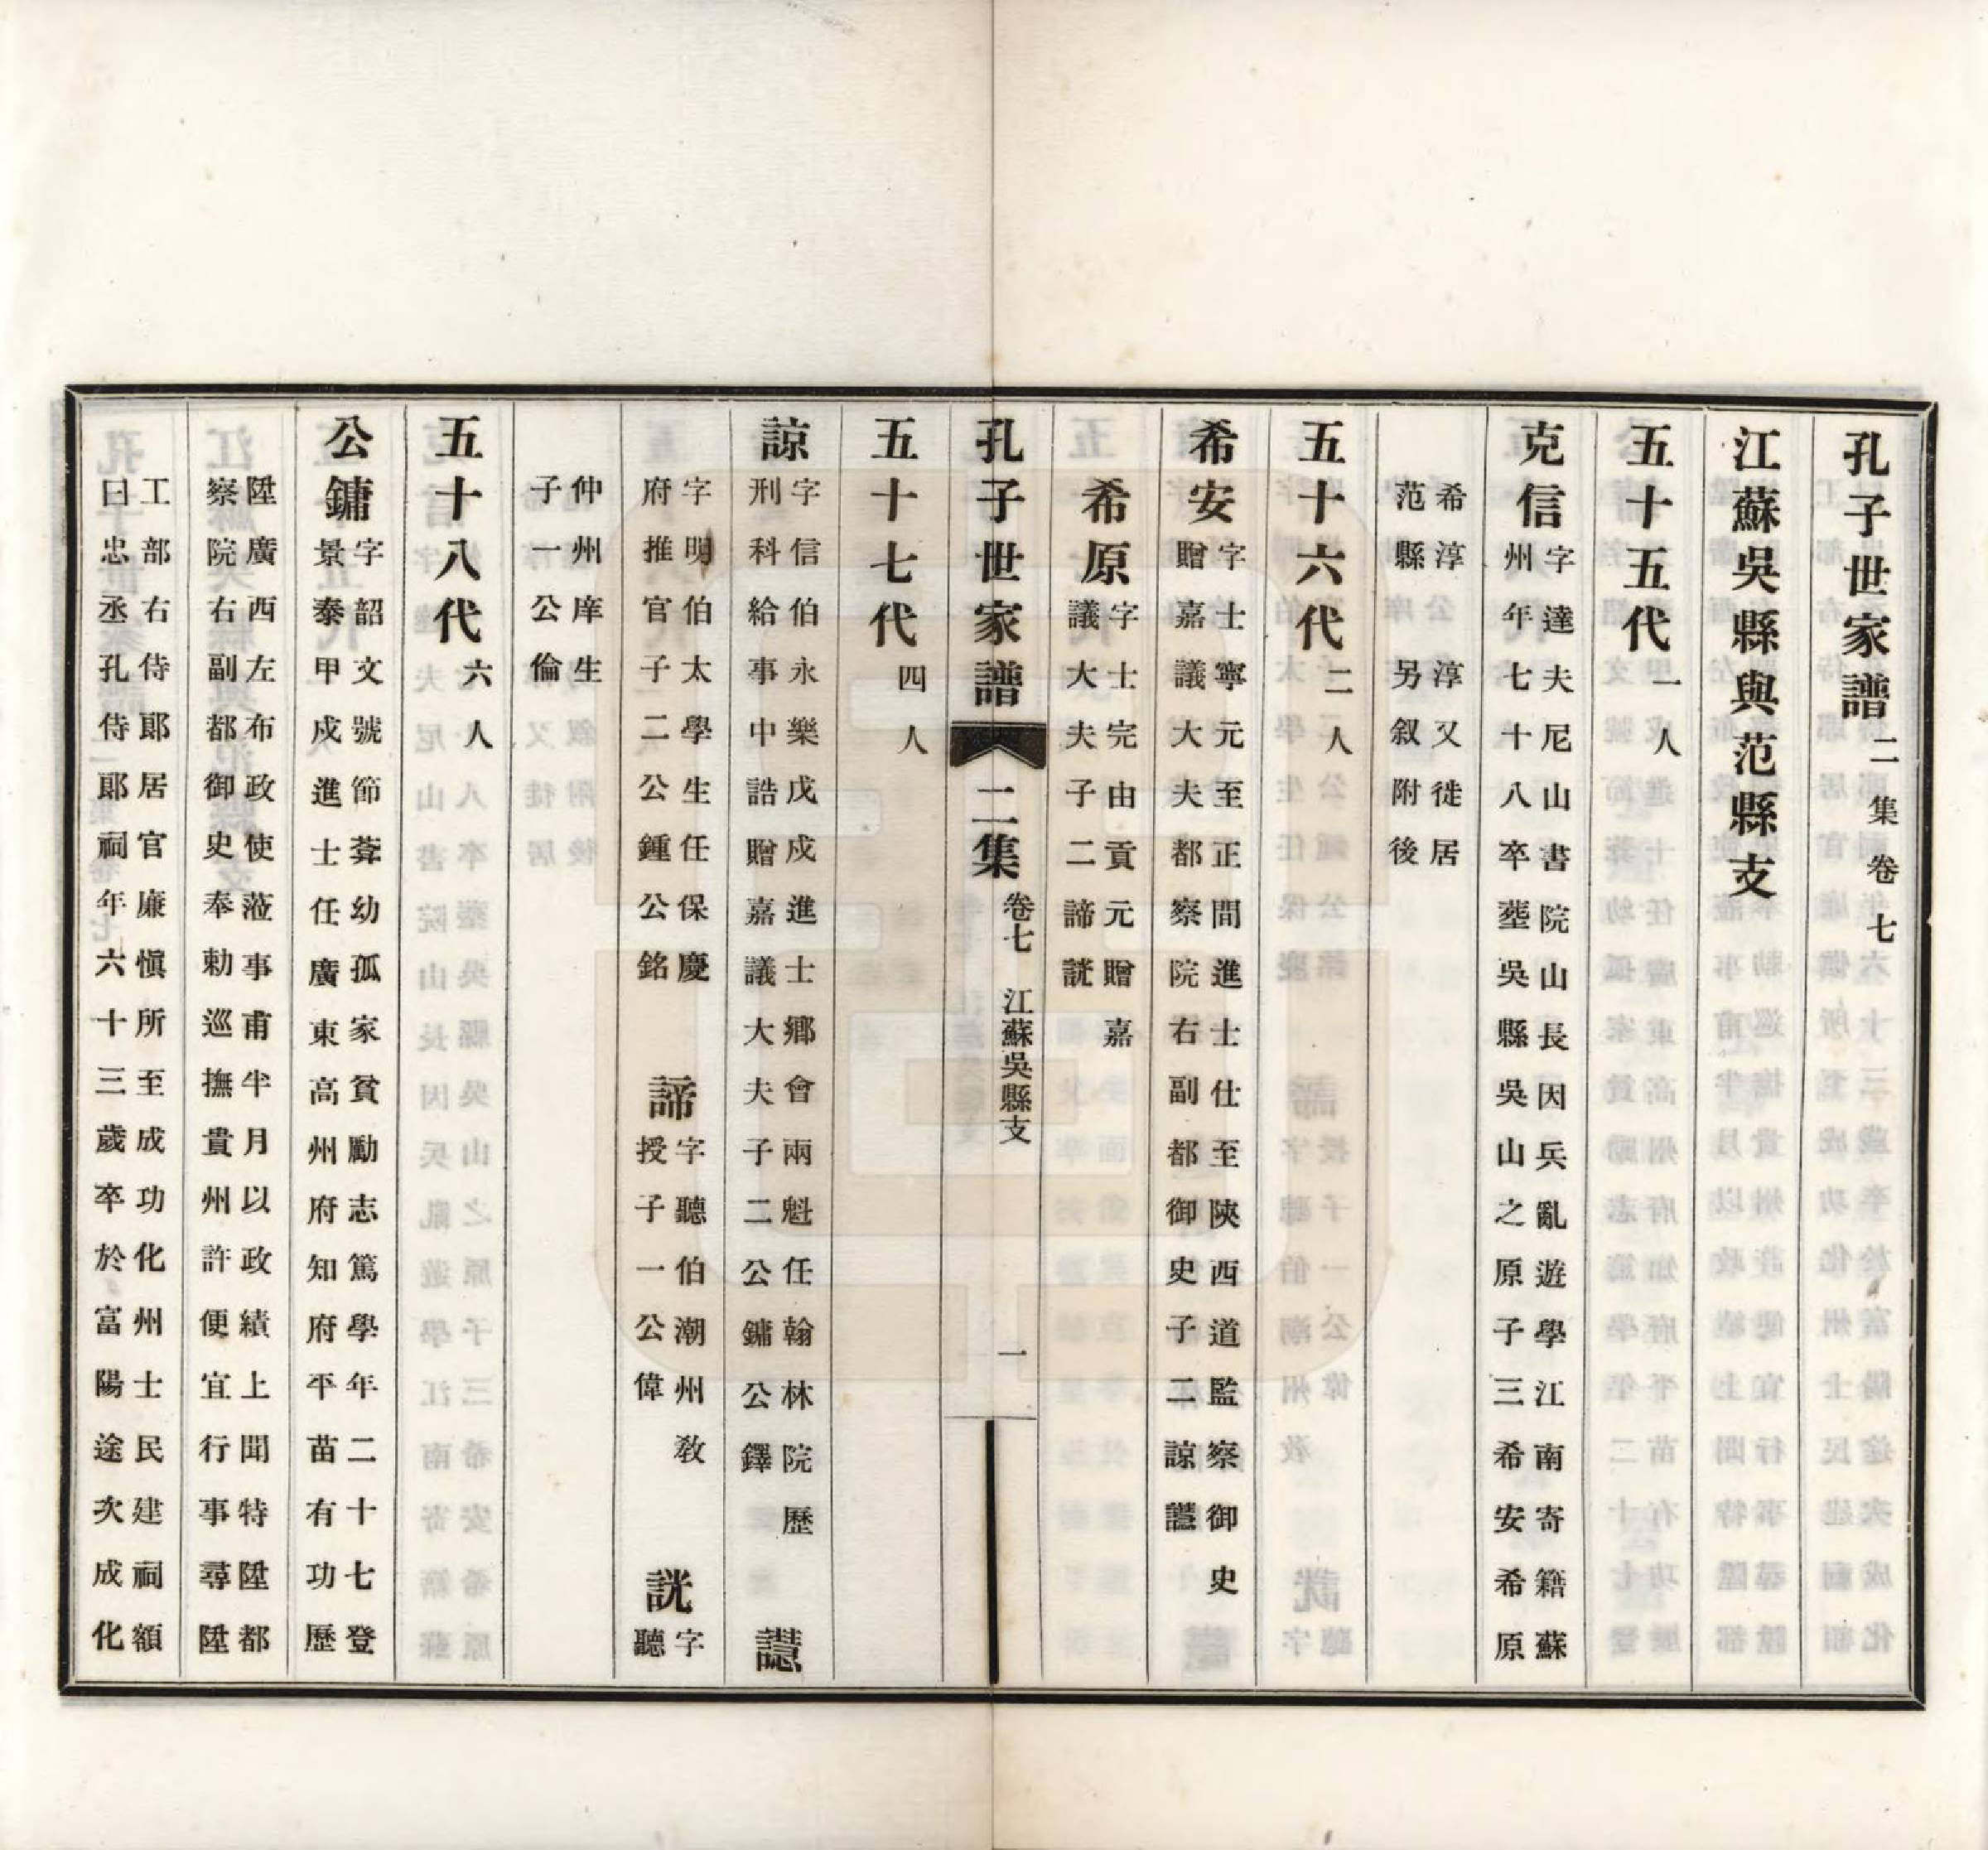 孔子世家譜二集卷七
江蘇吳縣與范縣支
五十五代一人
克信字達夫尼山書院山長因兵亂遊學江南寄籍蘇
州年七十八卒塟吳縣吳山之原子三希安希原
希淳公淳又徙居
范縣另叙附後
五十六代二人
希安字士寧元至正間進士仕至陝西道監察御史
贈嘉議大夫都察院右副都御史子二諒譿
希原字士完由貢元贈嘉
議大夫子二諦詵
孔子世家譜 二集 卷七 江蘇吳縣支 一
五十七代四人
諒字信伯永樂戊戌進士鄉會兩魁任翰林院歷
刑科給事中誥贈嘉議大夫子二公鏞公鐸
譿
字明伯太學生任保慶
府推官子二公鍾公銘
諦字聽伯潮州教
授子一公偉
詵字聽
仲州庠生
子一公倫
五十八代六人
公鏞字韶文號節菴幼孤家貧勵志篤學年二十七登
景泰甲戍進士任廣東高州府知府平苗有功歷
陞廣西左布政使蒞事甫半月以政績上聞特陞都
察院右副都御史奉勅巡撫貴州許便宜行事尋陞
工部右侍郎居官廉慎所至成功化州士民建祠額
曰忠丞孔侍郎祠年六十三歲卒於富陽途次成化